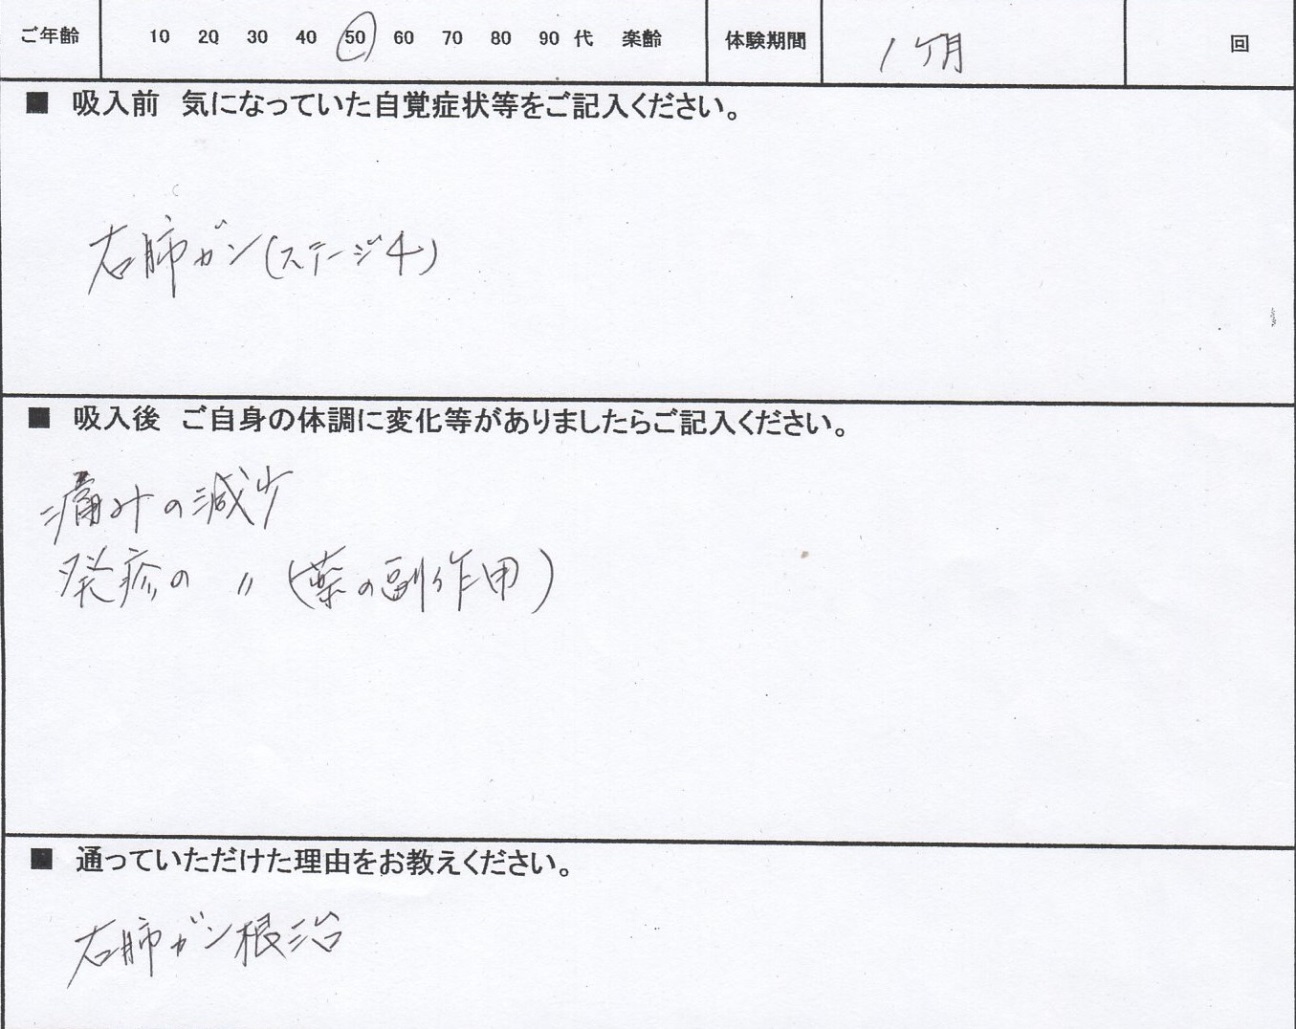 ご年齢 10 20 30 40 50 60 70 80 90 代 楽齢 体験期間 1ヶ月 回
■ 吸入前 気になっていた自覚症状等をご記入ください。
右肺ガン(ステージ4)
■ 吸入後 ご自身の体調に変化等がありましたらご記入ください。
痛みの減少
発疹の 〃 (薬の副作用)
■ 通っていただけた理由をお教えください。
右肺ガン根治